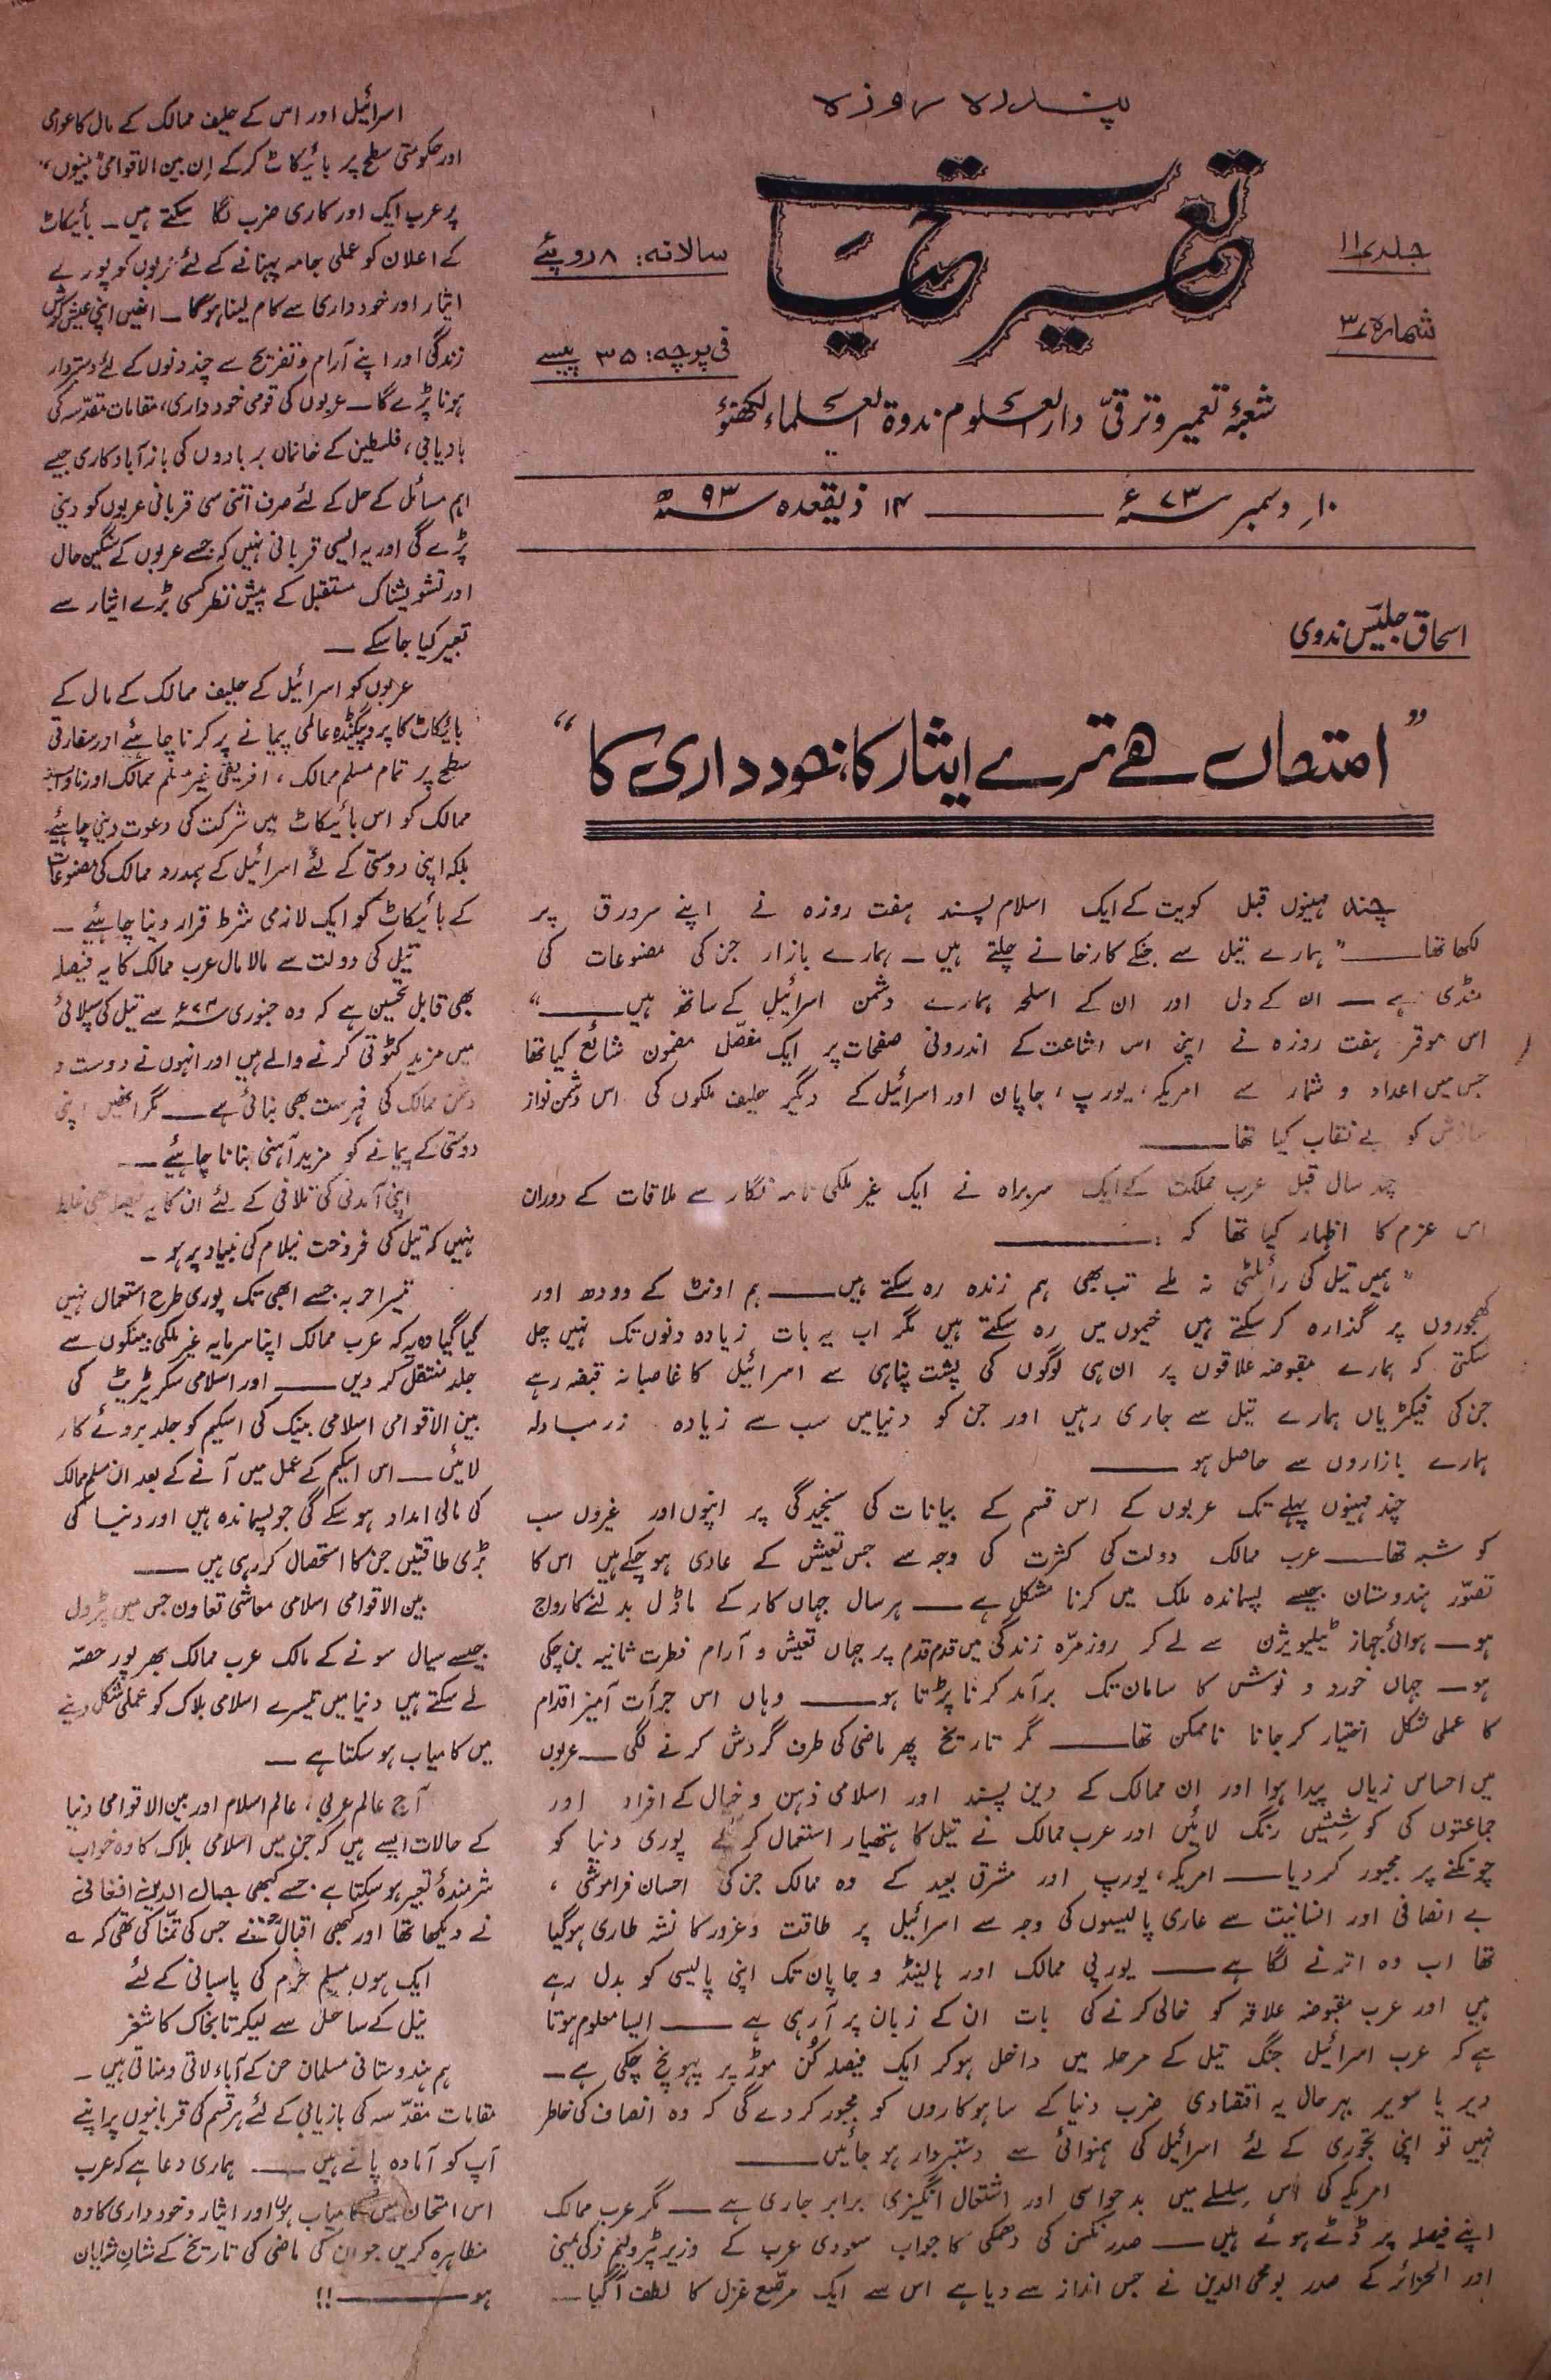 پندرہ روزہ
تعمیر حیات
جلد ۱۱
شمارہ ۳
سالانہ: ۸ روپئے
فی پرچہ: ۳۵ پیسے
شعبۂ تعمیر و ترقی دارالعلوم ندوۃ العلماء لکھنؤ
۱۰؍ دسمبر ۷۳ء ——— ۱۴ ذیقعدہ ۹۳ھ
اسحاق جلیس ندوی
"امتحاں ھے ترے ایثار کا، خود داری کا"
چند مہینوں قبل کویت کے ایک اسلام پسند ہفت روزہ نے اپنے سرورق پر
لکھا تھا —— "ہمارے تیل سے جنکے کارخانے چلتے ہیں۔ ہمارے بازار جن کی مصنوعات کی
منڈی ہے — ان کے دل اور ان کے اسلحہ ہمارے دشمن اسرائیل کے ساتھ ہیں ——"
اس موقر ہفت روزہ نے اپنی اس اشاعت کے اندرونی صفحات پر ایک مفصّل مضمون شائع کیا تھا
جس میں اعداد و شمار سے امریکہ، یورپ، جاپان اور اسرائیل کے دیگر حلیف ملکوں کی اس دشمن نواز
سازش کو بے نقاب کیا تھا ——
چند سال قبل عرب مملکت کے ایک سربراہ نے ایک غیر ملکی نامہ نگار سے ملاقات کے دوران
اس عزم کا اظہار کیا تھا کہ: ————
"ہمیں تیل کی رائلٹی نہ ملے تب بھی ہم زندہ رہ سکتے ہیں —— ہم اونٹ کے دودھ اور
کھجوروں پر گذارہ کر سکتے ہیں خیموں میں رہ سکتے ہیں مگر اب یہ بات زیادہ دنوں تک نہیں چل
سکتی کہ ہمارے مقبوضہ علاقوں پر ان ہی لوگوں کی پشت پناہی سے اسرائیل کا غاصبانہ قبضہ رہے
جن کی فیکٹریاں ہمارے تیل سے جاری رہیں اور جن کو دنیا میں سب سے زیادہ زرمبادلہ
ہمارے بازاروں سے حاصل ہو ——
چند مہینوں پہلے تک عربوں کے اس قسم کے بیانات کی سنجیدگی پر اپنوں اور غیروں سب
کو شبہ تھا —— عرب ممالک دولت کی کثرت کی وجہ سے جس تعیش کے عادی ہو چکے ہیں اس کا
تصوّر ہندوستان جیسے پسماندہ ملک میں کرنا مشکل ہے —— ہر سال جہاں کار کے ماڈل بدلنے کا رواج
ہو — ہوائی جہاز ٹیلیویژن سے لے کر روزمرّہ زندگی میں قدم قدم پر جہاں تعیش و آرام فطرت ثانیہ بن چکی
ہو — جہاں خورد و نوش کا سامان تک برآمد کرنا پڑتا ہو —— وہاں اس جرأت آمیز اقدام
کا عملی شکل اختیار کر جانا ناممکن تھا —— مگر تاریخ پھر ماضی کی طرف گردش کرنے لگی — عربوں
میں احساس زیاں پیدا ہوا اور ان ممالک کے دین پسند اور اسلامی ذہن و خیال کے افراد اور
جماعتوں کی کوششیں رنگ لائیں اور عرب ممالک نے تیل کا ہتھیار استعمال کر کے پوری دنیا کو
چونکنے پر مجبور کر دیا —— امریکہ، یورپ اور مشرق بعید کے وہ ممالک جن کی احسان فراموشی،
بے انصافی اور انسانیت سے عاری پالیسیوں کی وجہ سے اسرائیل پر طاقت و غرور کا نشہ طاری ہو گیا
تھا اب وہ اترنے لگا ہے —— یورپی ممالک اور ہالینڈ و جاپان تک اپنی پالیسی کو بدل رہے
ہیں اور عرب مقبوضہ علاقہ کو خالی کرنے کی بات ان کے زبان پر آرہی ہے —— ایسا معلوم ہوتا
ہے کہ عرب اسرائیل جنگ تیل کے مرحلہ میں داخل ہو کر ایک فیصلہ کُن موڑ پر پہونچ چکی ہے —
دیر یا سویر بہرحال یہ اقتصادی ضرب دنیا کے ساہوکاروں کو مجبور کر دے گی کہ وہ انصاف کی خاطر
نہیں تو اپنی تجوری کے لئے اسرائیل کی ہمنوائی سے دستبردار ہو جائیں ——
امریکہ کی اس سلسلے میں بدحواسی اور اشتعال انگیزی برابر جاری ہے —— مگر عرب ممالک
اپنے فیصلہ پر ڈٹے ہوئے ہیں —— صدر نکسن کی دھمکی کا جواب سعودی عرب کے وزیر پٹرولیم زکی یمینی
اور الجزائر کے صدر بومحی الدین نے جس انداز سے دیا ہے اس سے ایک مرصّع غزل کا لطف آگیا —
اسرائیل اور اس کے حلیف ممالک کے مال کا عوامی
اور حکومتی سطح پر بائیکاٹ کرکے اِن بین الاقوامی "بنیوں"
پر عرب ایک اور کاری ضرب لگا سکتے ہیں — بائیکاٹ
کے اعلان کو عملی جامہ پہنانے کے لئے عربوں کو پورے
ایثار اور خود داری سے کام لینا ہوگا — انھیں اپنی عیش کوش
زندگی اور اپنے آرام و تفریح سے چند دنوں کے لئے دستبردار
ہونا پڑے گا — عربوں کی قومی خود داری، مقامات مقدّسہ کی
بازیابی، فلسطین کے خانماں بربادوں کی باز آبادکاری جیسے
اہم مسائل کے حل کے لئے صرف اتنی سی قربانی عربوں کو دینی
پڑے گی اور یہ ایسی قربانی نہیں کہ جسے عربوں کے سنگین حال
اور تشویشناک مستقبل کے پیش نظر کسی بڑے ایثار سے
تعبیر کیا جا سکے —
عربوں کو اسرائیل کے حلیف ممالک کے مال کے
بائیکاٹ کا پروپیگنڈہ عالمی پیمانے پر کرنا چاہئے اور سفارتی
سطح پر تمام مسلم ممالک، افریقی غیر مسلم ممالک اور ناوابستہ
ممالک کو اس بائیکاٹ میں شرکت کی دعوت دینی چاہئے
بلکہ اپنی دوستی کے لئے اسرائیل کے ہمدرد ممالک کی مصنوعات
کے بائیکاٹ کو ایک لازمی شرط قرار دینا چاہئے —
تیل کی دولت سے مالا مال عرب ممالک کا یہ فیصلہ
بھی قابل تحسین ہے کہ وہ جنوری ۷۴ء سے تیل کی سپلائی
میں مزید کٹوتی کرنے والے ہیں اور انہوں نے دوست و
دشمن ممالک کی فہرست بھی بنائی ہے —— مگر انھیں اپنی
دوستی کے پیمانے کو مزید آہنی بنانا چاہئے —
اپنی آمدنی کی تلافی کے لئے ان کا یہ فیصلہ بھی غلط
نہیں کہ تیل کی فروخت نیلام کی بنیاد پر ہو —
تیسرا حربہ جسے ابھی تک پوری طرح استعمال نہیں
کیا گیا وہ یہ کہ عرب ممالک اپنا سرمایہ غیر ملکی بینکوں سے
جلد منتقل کر دیں —— اور اسلامی سکریٹریٹ کی
بین الاقوامی اسلامی بینک کی اسکیم کو جلد بروئے کار
لائیں — اس اسکیم کے عمل میں آنے کے بعد ان مسلم ممالک
کی مالی امداد ہو سکے گی جو پسماندہ ہیں اور دنیا کی
بڑی طاقتیں جن کا استحصال کر رہی ہیں ——
بین الاقوامی اسلامی معاشی تعاون جس میں پٹرول
جیسے سیال سونے کے مالک عرب ممالک بھرپور حصّہ
لے سکتے ہیں دنیا میں تیسرے اسلامی بلاک کو عملی شکل دینے
میں کامیاب ہو سکتا ہے —
آج عالم عربی، عالم اسلام اور بین الاقوامی دنیا
کے حالات ایسے ہیں کہ جن میں اسلامی بلاک کا وہ خواب
شرمندۂ تعبیر ہو سکتا ہے۔ جسے کبھی جمال الدین افغانی
نے دیکھا تھا اور کبھی اقبالؒ نے جس کی تمنّا کی تھی کہ ؎
ایک ہوں مسلم حرم کی پاسبانی کے لئے
نیل کے ساحل سے لیکر تا بخاک کاشغر
ہم ہندوستانی مسلمان جن کے آباء لاتی و مناتی ہیں —
مقامات مقدّسہ کی بازیابی کے لئے ہر قسم کی قربانیوں پر اپنے
آپ کو آمادہ پاتے ہیں —— ہماری دعا ہے کہ عرب
اس امتحان میں کامیاب ہوں اور ایثار و خود داری کا وہ
مظاہرہ کریں جو ان کی ماضی کی تاریخ کے شان شایان
ہو ————!!